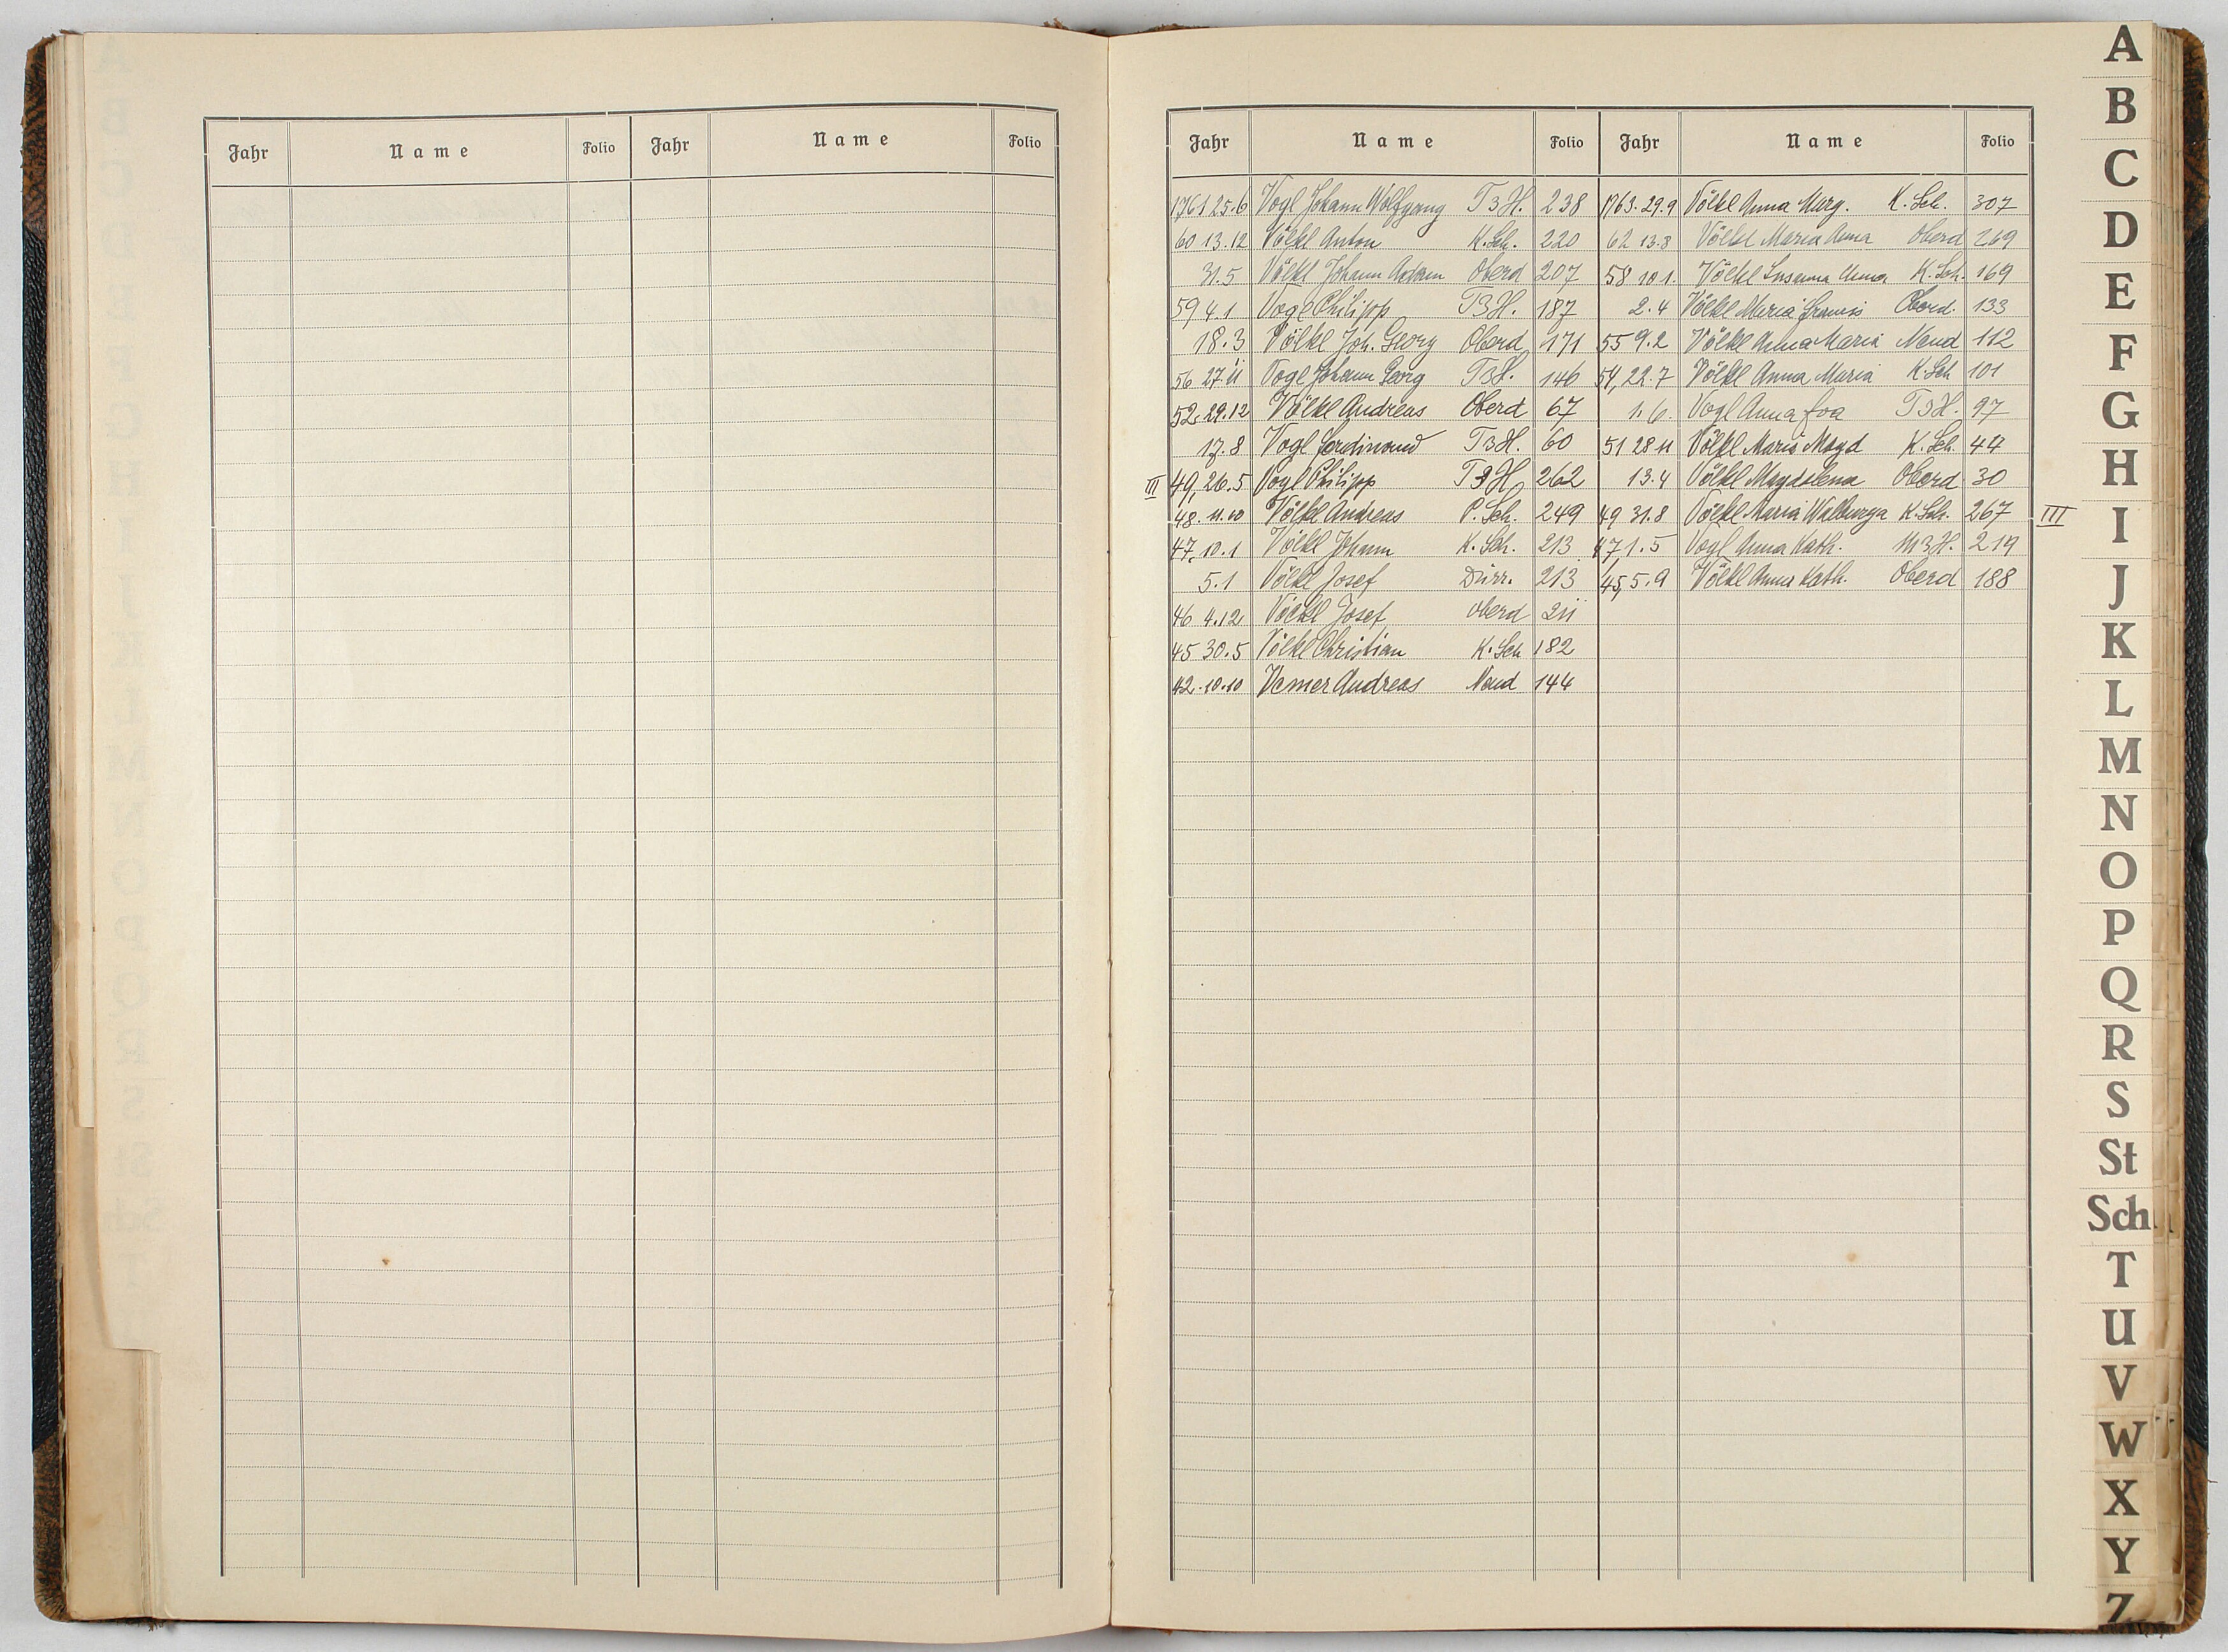 Jahr Name Folio Jahr Name Folio
Jahr Name Folio Jahr Name Folio
1761 25.6 Vogl Johann Wolfgang T3H. 238
60 13.12 Völkl Anton K.Sch. 220
31.5 Völkl Johann Adam Oberd 207
59 4.1 Vogl Philipp T3H. 187
18.3 Völkl Joh. Georg Oberd 171
56 27.11 Vogl Johann Georg T3H. 146
52. 29.12 Völkl Andreas Oberd 67
17.8 Vogl Ferdinand T3H. 60
III 49, 26.5 Vogl Philipp T3H 262
48. 11.10 Völkl Andreas P. Sch. 249
47, 10.1 Völkl Johann K. Sch. 213
5.1 Völkl Josef Dürr. 213
46 4.12 Völkl Josef Oberd 211
45 30.5 Völkl Christian K. Sch 182
42. 10.10 Andreas Neud 144
1763. 29.9 Völkl Anna Marg. K. Sch. 307
62 13.3 Völkl Maria Anna Oberd 269
58 10 1. Völkl Susanna Anna K. Sch. 169
2.4 Völkl Maria Oberd. 133
55 9.2 Völkl Anna Maria Neud 112
54, 22.7 Völkl Anna Maria K. Sch 101
1.6. Vogl Anna Eva T3H. 97
51 28 11 Völkl Maria Magd K. Sch. 44
13.4 Völkl Magdalena Oberd 30
49 31.8 Völkl Maria Walburga K. Sch. 267 III
47 1.5 Vogl Anna Kath. M3H. 219
45, 5.9 Völkl Anna Kath. Oberd 188
A
B
C
D
E
F
G
H
I
J
K
L
M
N
O
P
Q
R
S
St
Sch
T
U
V
W
X
Y
Z